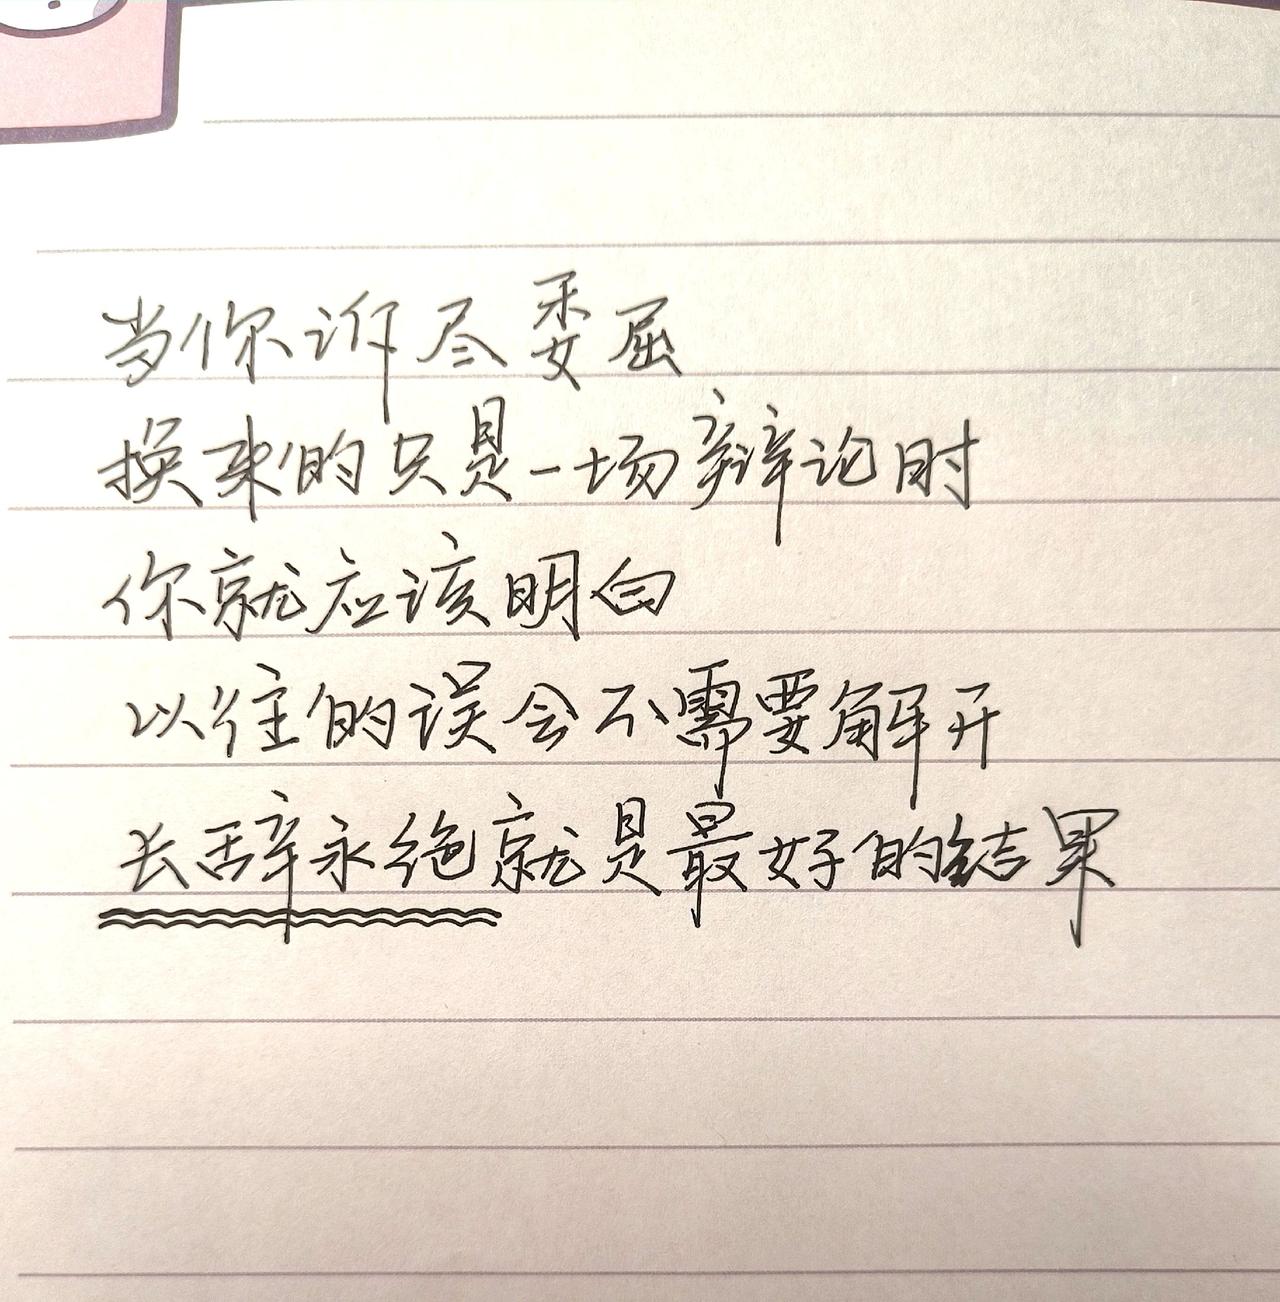 当你诉尽委屈
换来的只是一场辩论时
你就应该明白
以往的误会不需要解开
长辞永绝就是最好的结果